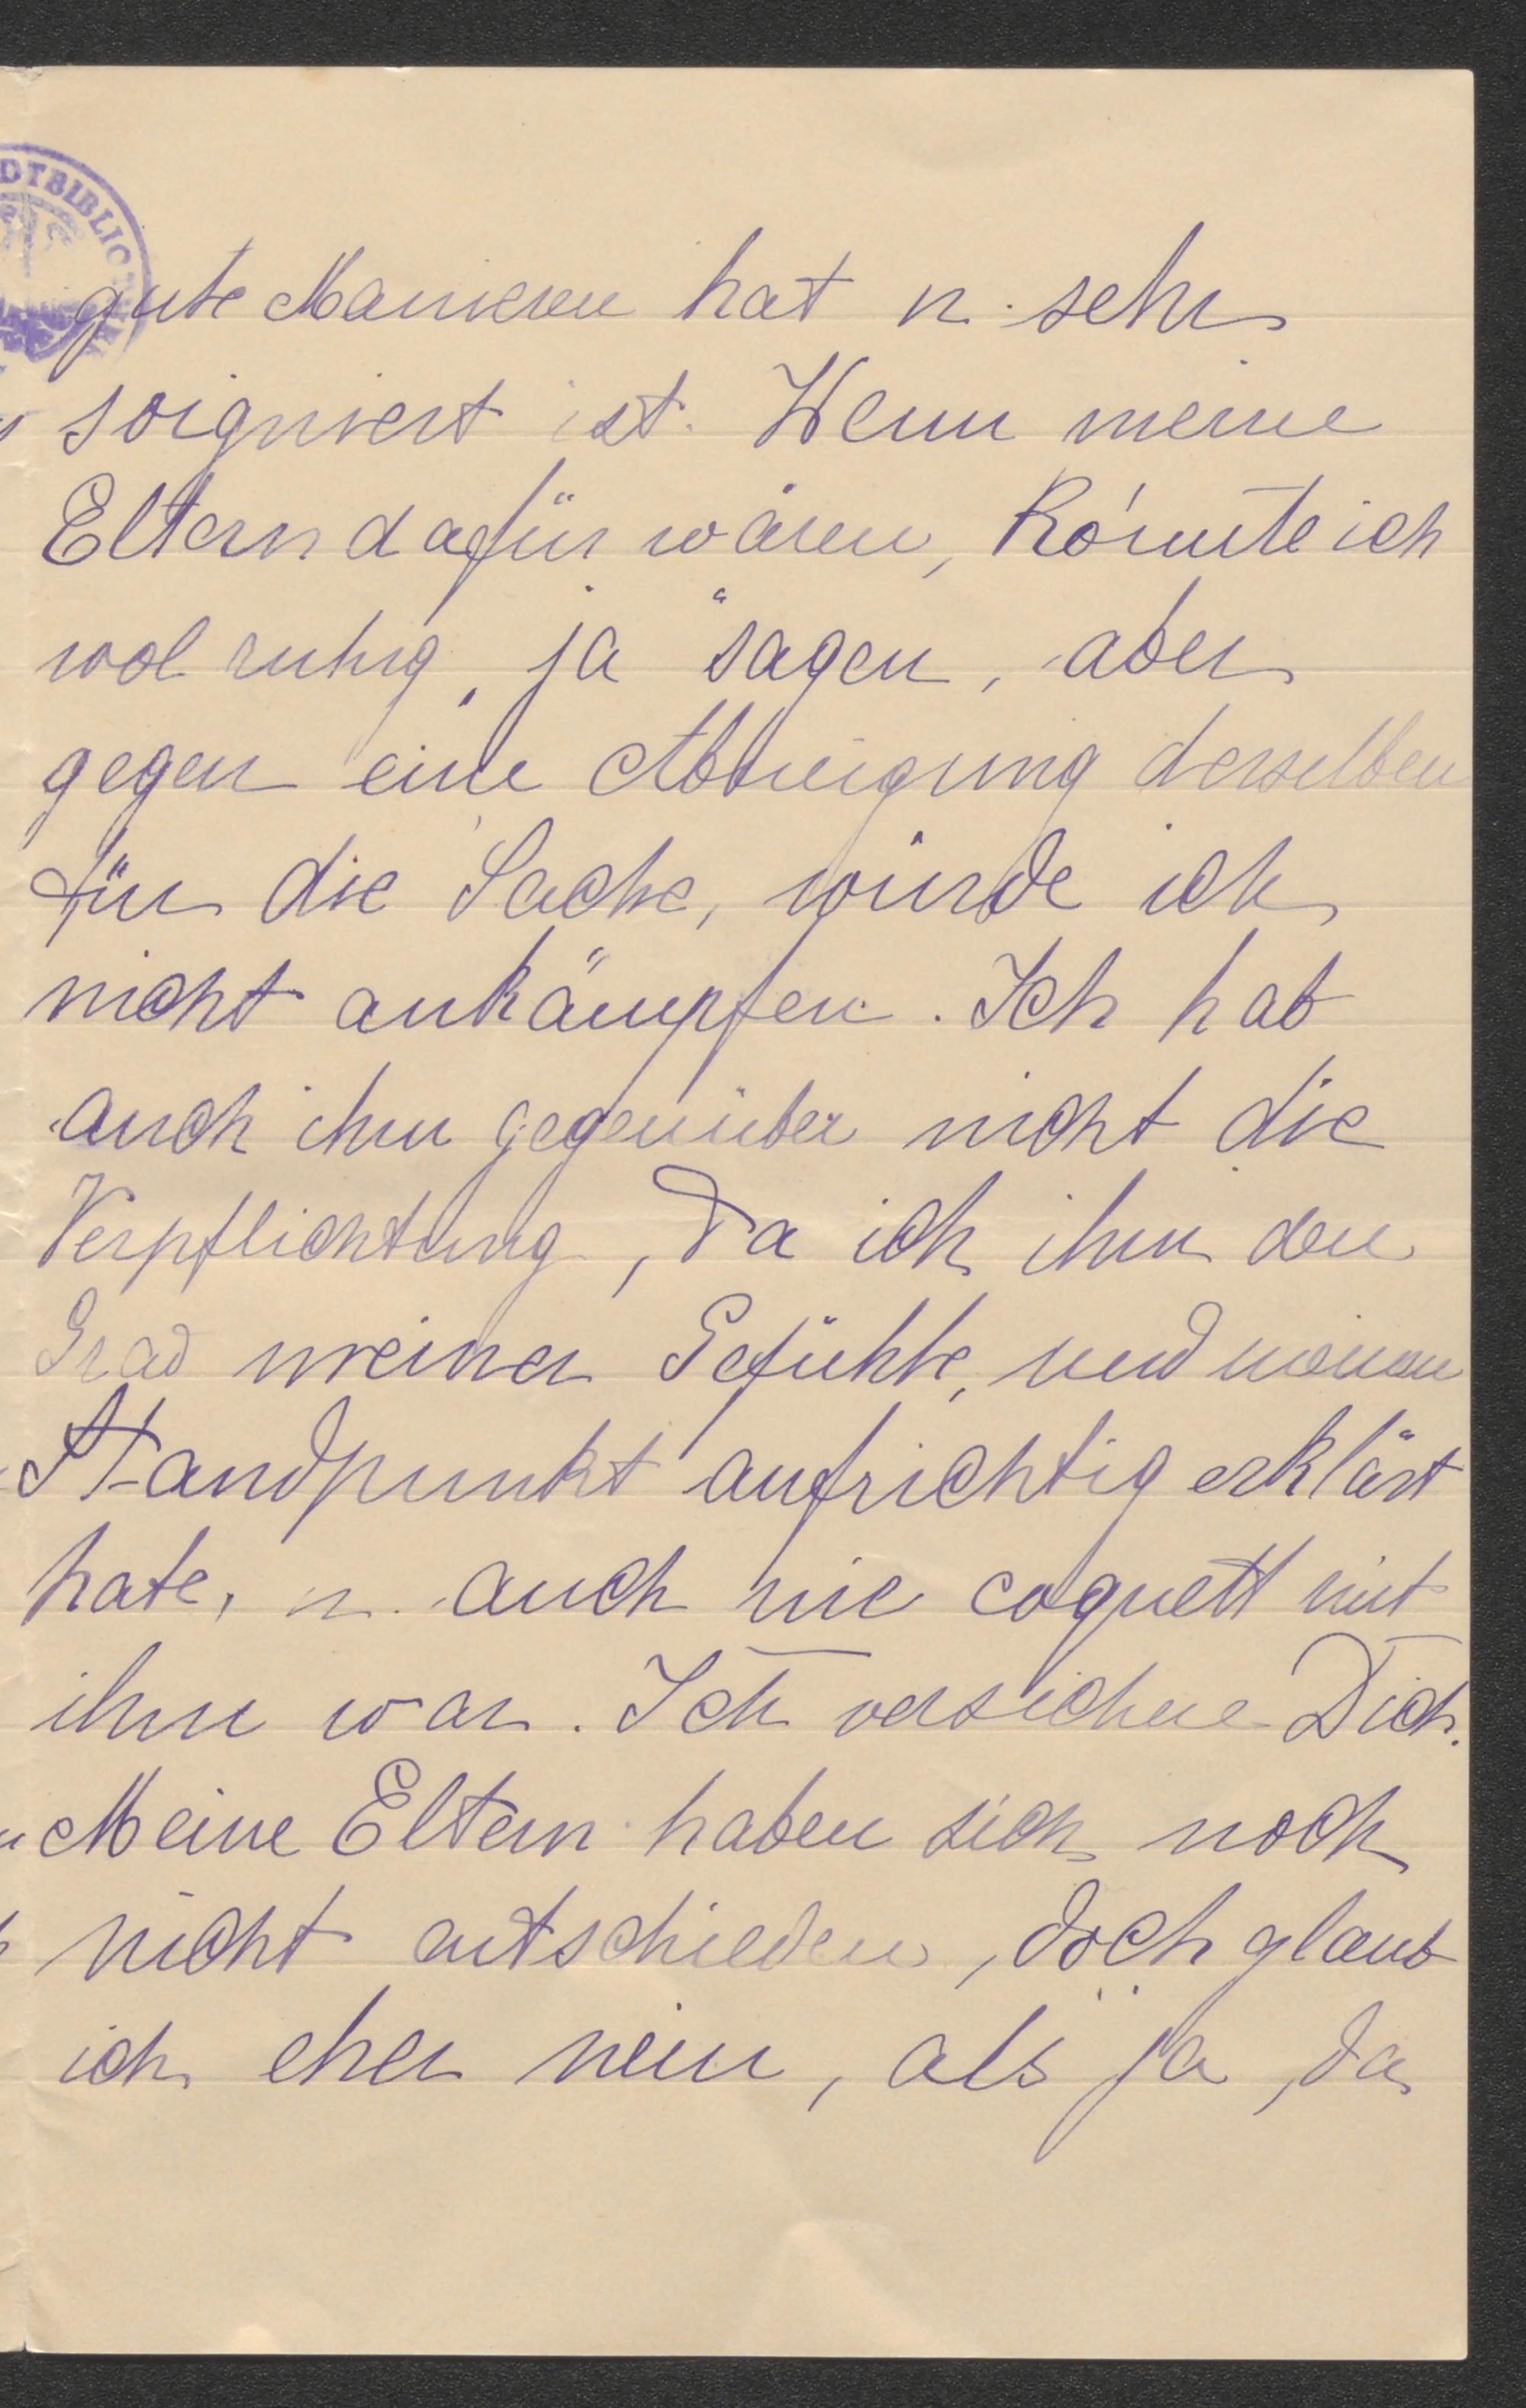 DTBIBLIO
gute Manieren hat u. sehr
soigniert ist. Wenn meine
Eltern dafür wären, könnte ich
wol ruhig „ja“ sagen, aber
gegen eine Abneigung derselben
für die Sache, würde ich
nicht ankämpfen. Ich hab
auch ihm gegenüber nicht die
Verpflichtung, da ich ihm den
Grad meiner Gefühle, und meinen
Standpunkt aufrichtig erklärt
habe, u. auch nie coquett mit
ihm war. Ich versichere Dich.
Meine Eltern haben sich noch
nicht entschieden, doch glaub
ich eher nein, als ja, da